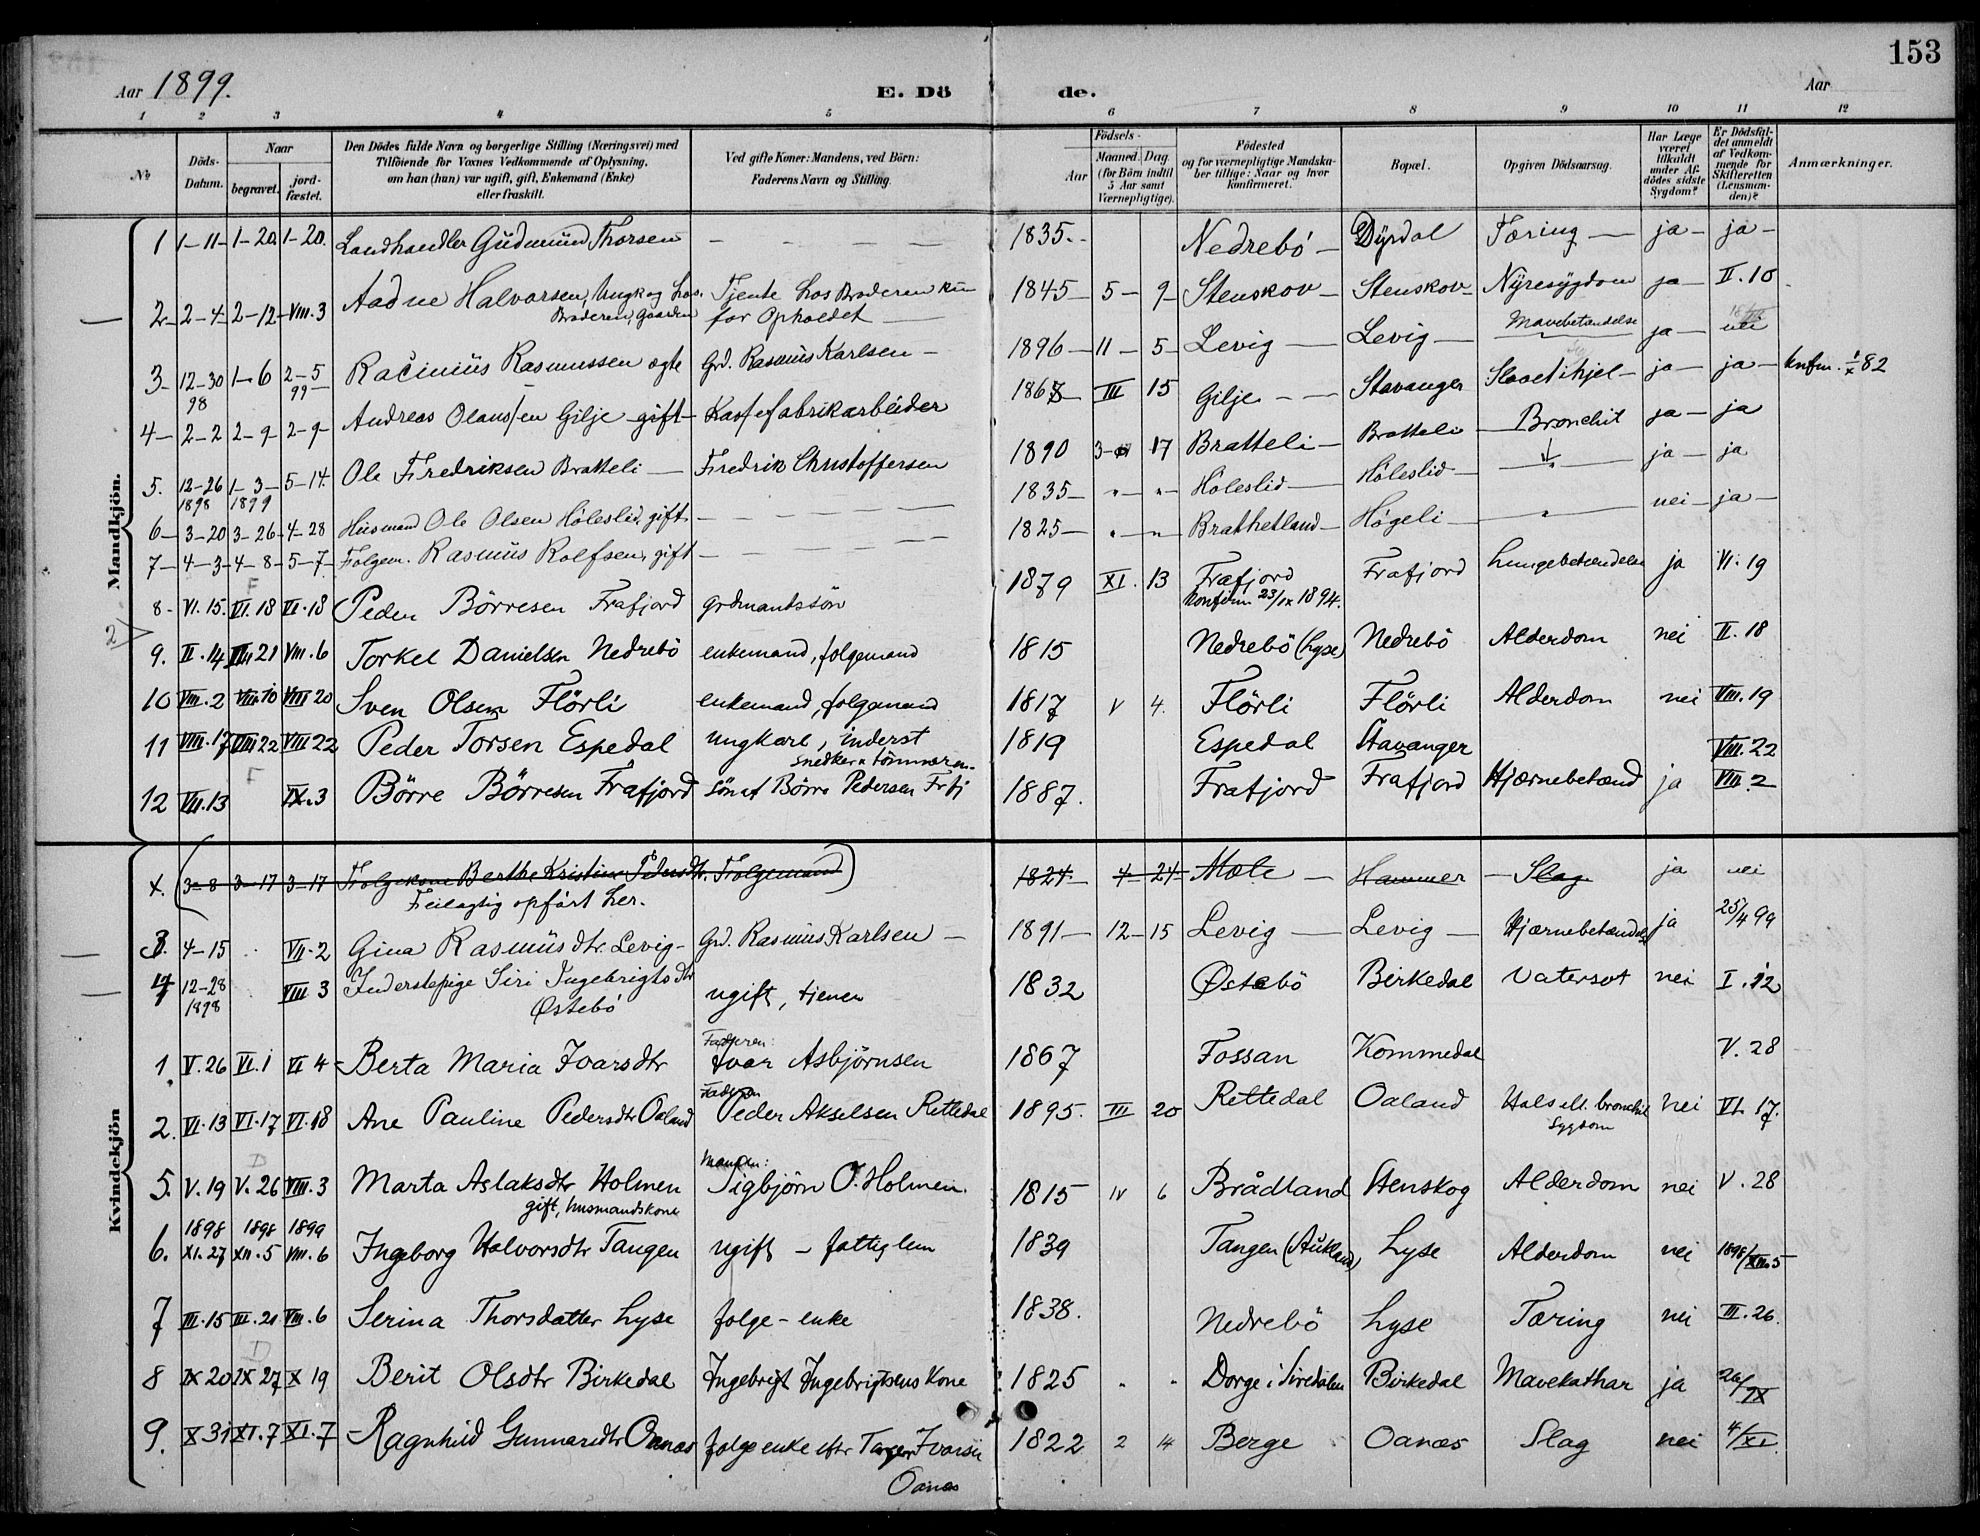 153
Aar 1899.
E. Dö de.
Aar
1 2 3 4 5 6 7 8 9 10 11 12
No
Döds-Datum.
Naar
begravet.
jord-fæstet.
Den Dödes fulde Navn og borgerlige Stilling (Næringsvei) med
Tilföiende for Voxnes Vedkommende af Oplysning,
om han (hun) var ugift, gift, Enkemand (Enke)
eller fraskilt.
Ved gifte Koner: Mandens, ved Börn:
Faderens Navn og Stilling.
Födsels-
Aar
Maaned. Dag.
(for Börn indtil
5 Aar samt
Værnepligtige).
Födested
og for værnepligtige Mandska-
ber tillige: Naar og hvor
konfirmeret.
Bopæl.
Opgiven Dödsaarsag.
Har Læge
været
tilkaldt
under Af-
dödes sidste
Sygdom?
Er Dödsfal-
det anmeldt
af Vedkom-
mende for
Skifteretten
(Lensman-
den)?
Anmærkninger.
Mandkjön.
1 1-11- 1-20. 1-20. Landhandler Gudmund Thorsen — 1835. Nedrebö Dyrdal Tæring ja ja
2 2-4 2-12 VIII.3 Aadne Halvorsen, Ungk og hos Broderen, Gaarden Tjente hos Broderen kun for Opholdet 1845 5 9 Stenskov Stenskov Nyresygdom ja II.10
3 12-30 98 1-6 2-5 99 Rasmus Rasmussen ægte Grd. Rasmus Karlsen 1896 11 5 Levig Levig Mavebetændelse ja nei
4 2-2 2-9 2-9 Andreas Olaussen Gilje gift Kassefabrikarbeider 1868 III 15 Gilje Stavanger Slaaet ihjel ja ja knfm. 1/x 82
5. 12-26 1898 1-3 1899 5-14. Ole Fredriksen Bratteli Fredrik Christoffersen 1890 3 17 Bratteli Bratteli Bronchit ja ja
6 3-20 3-26 4-28 Husmand Ole Olsen Höleslid, gift 1835 " " Höleslid Höleslid " ja ja
7 4-3 4-8 5-7 Folgem. Rasmus Rolfsen, gift 1825 " " Brathetland Högeli " nei ja
8 VI.15. VI.18 VI.18 Peder Börresen Frafjord grdmandssön 1879 XI. 13 Frafjord konfirm 23/IX 1894. Frafjord Lungebetændelse ja VI.19
9. II.14 III 21 VIII.6 Torkel Danielsen Nedrebö enkemand, folgemand 1815 Nedrebö (Lyse) Nedrebö Alderdom nei II.18
10 VIII.2 VIII 10 VIII 20 Sven Olsen Flörli enkemand, folgemand 1817 V 4. Flörli Flörli Alderdom nei VIII.19
11 VIII.17 VIII 22 VIII 22 Peder Torsen Espedal Ungkarl, inderst snedker & tömmerm. 1819 Espedal Stavanger VIII.22
12 VII.13 IX.3 Börre Börresen Frafjord Sön af Börre Pedersen Frfj 1887. Frafjord Frafjord Hjærnebetænd ja VIII.2
Kvindekjön
x. (3-8 3-17 3-17 Folgekone Berthe Kristine Pedersdtr. Folgemand) 1824 4 24 Mæle Hammer Slag ja nei
Feilagtig opfört her.
3. 4-15 VII.2 Gina Rasmusdtr. Levig Grd. Rasmus Karlsen 1891 12 15 Levig Levig Hjærnebetændelse ja 25/4 99
4 12-28 1898 VIII 3 Inderstepige Siri Ingebrigtsdtr Østebö ugift, tjener 1832 Østebö Birkedal Vatersot nei I.12
1. V.26 VI.1 VI 4 Berta Maria Ivarsdtr Faderen: Ivar Asbjörnsen 1867 Fossan Kommedal V.28
2. VI.13 VI.17 VI.18 Ane Pauline Pedersdtr Oaland Faderen Peder Akselsen Rettedal 1895. III 20 Rettedal Oaland Hals ell. bronchit Sygdom nei VI.17.
5. V.19 V.26 VIII.3 Marta Aslaksdtr Holmen gift, husmandskone Manden: Sigbjörn O. Holmen. 1815 IV 6 Brådland Stenskog Alderdom nei V.28
6. 1898 XI.27 1898 XII.5 1899 VIII.6 Ingeborg Halvorsdtr Tangen ugift – fattiglem 1839 Tangen (Aukland) Lyse Alderdom nei 1898/XII.5
7 III.15 III.21 VIII.6 Serina Thorsdatter Lyse folge-enke 1838. Nedrebö Lyse Tæring nei III.26.
8 IX 20 IX 27 X 19 Berit Olsdtr Birkedal Ingebrigt Ingebrigtsens Kone 1825 " " Dorge i Siredalen Birkedal Mavekathar ja 26/IX
9. X 31 XI.7 XI.7 Ragnhild Gunnarsdtr Oanæs folge enke efter Tarjer Ivarsen Oanæs 1822 2 14 Berge Oanæs Slag nei 4/XI.